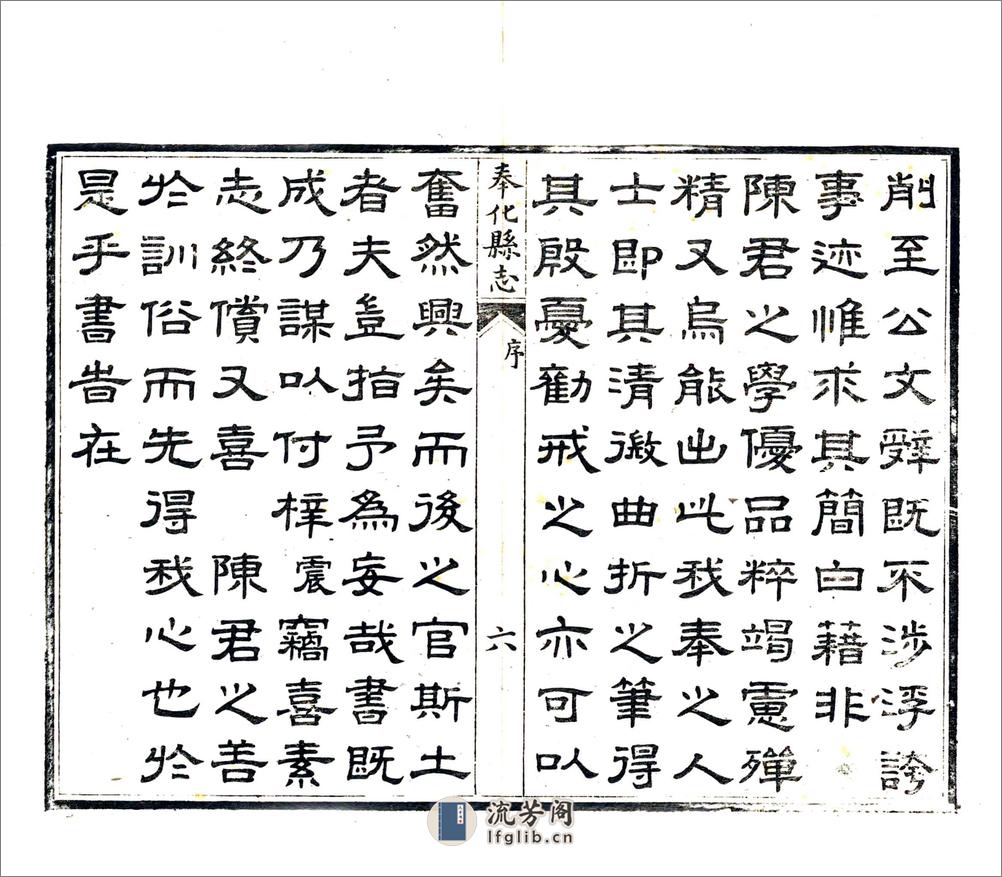 削至公文辤既不涉浮誇
事迹惟求其簡白藉非
陳君之學優品粹竭慮殫
精又烏能出此我奉之人
士即其清微曲折之筆得
其殷憂勸戒之心亦可以
奉化縣志
序
六
奮然興矣而後之官斯土
者夫豈指予為妄哉書既
成乃謀以付梓震竊喜素
志終償又喜 陳君之善
於訓俗而先得我心也於
是乎書旹在
流芳阁
lfglib.cn